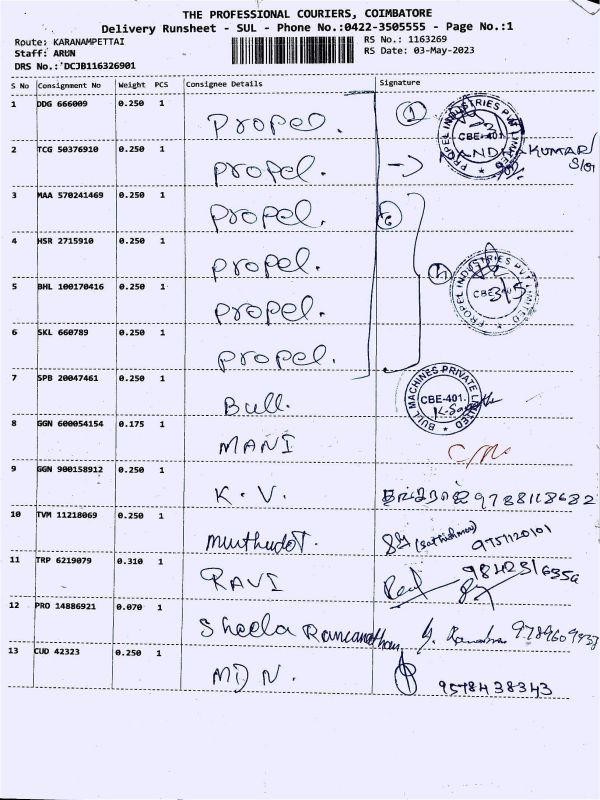 THE PROFESSIONAL COURIERS, COIMBATORE
Delivery Runsheet - SUL - Phone No.:0422-3505555 - Page No.:1
Route: KARANAMPETTAI RS No.: 1163269
Staff: ARUN RS Date: 03-May-2023
DRS No.: DCJB116326901
S No Consignment No Weight PCS Consignee Details Signature
1 DDG 666009 0.250 1 Propel. 1 PROPEL INDUSTRIES PVT LIMITED CBE-401
2 TCG 50376910 0.250 1 propel.
3 MAA 570241469 0.250 1 propel.
4 HSR 2715910 0.250 1 propel. PROPEL INDUSTRIES PVT LIMITED
5 BHL 100170416 0.250 1 propel. CBE 3/5
6 SKL 660789 0.250 1 propel.
7 SPB 20047461 0.250 1 Bull. BULL MACHINES PRIVATE LIMITED CBE-401.
8 GGN 600054154 0.175 1 MANI
9 GGN 900158912 0.250 1 K. V. 9788118682
10 TVM 11218069 0.250 1 9751120101
11 TRP 6219079 0.310 1 RAVI
12 PRO 14886921 0.070 1 Sheela
13 CUD 42323 0.250 1 MD N. 9578438343